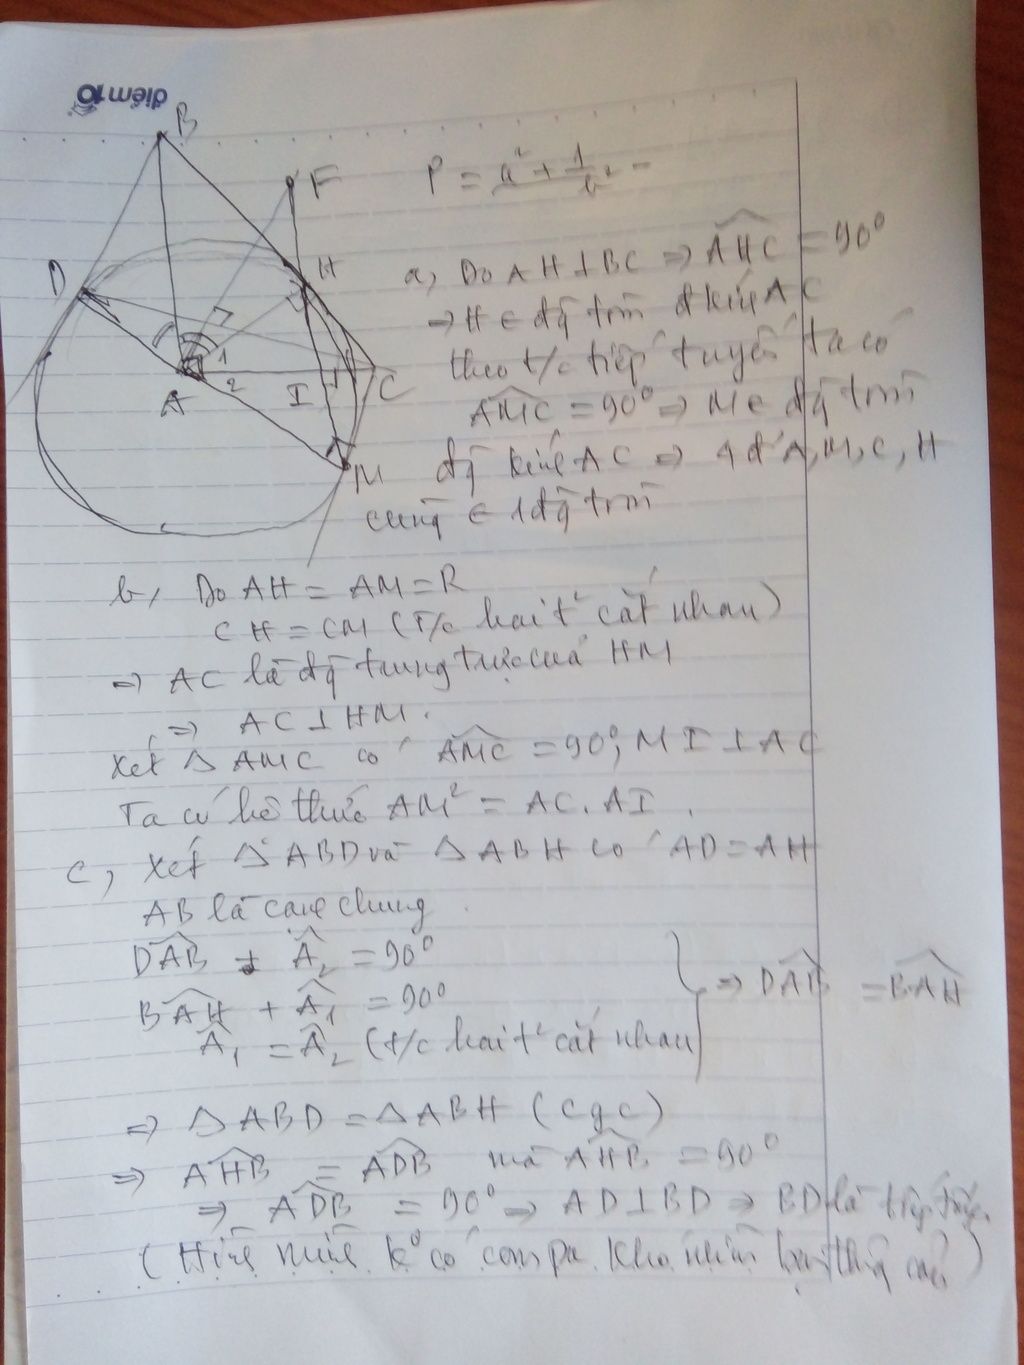 điểm 10
B
F
P = a² + 1/b² -
D
H
A
1
2
I
1
C
M
a, Do AH ⊥ BC ⇒ AHC = 90°
⇒ H ∈ đg tròn đkính AC
theo t/c tiếp tuyến ta có
AMC = 90° ⇒ M ∈ đg tròn
đg kính AC ⇒ 4 đ' A, M, C, H
cùng ∈ 1 đg tròn
b, Do AH = AM = R
CH = CM (T/c hai t² cắt nhau)
⇒ AC là đg trung trực của HM
⇒ AC ⊥ HM.
Xét Δ AMC có AMC = 90°, MI ⊥ AC
Ta có hệ thức AM² = AC. AI.
c, Xét Δ ABD và Δ ABH có AD = AH
AB là cạnh chung.
DAB + A₂ = 90°
BAH + A₁ = 90° } ⇒ DAB = BAH
A₁ = A₂ (t/c hai t² cắt nhau)
⇒ Δ ABD = Δ ABH (cgc)
⇒ AHB = ADB mà AHB = 90°
⇒ ADB = 90° ⇒ AD ⊥ BD ⇒ BD là tiếp tuyến
(Hình k° có compa khó nhìn thông cảm)